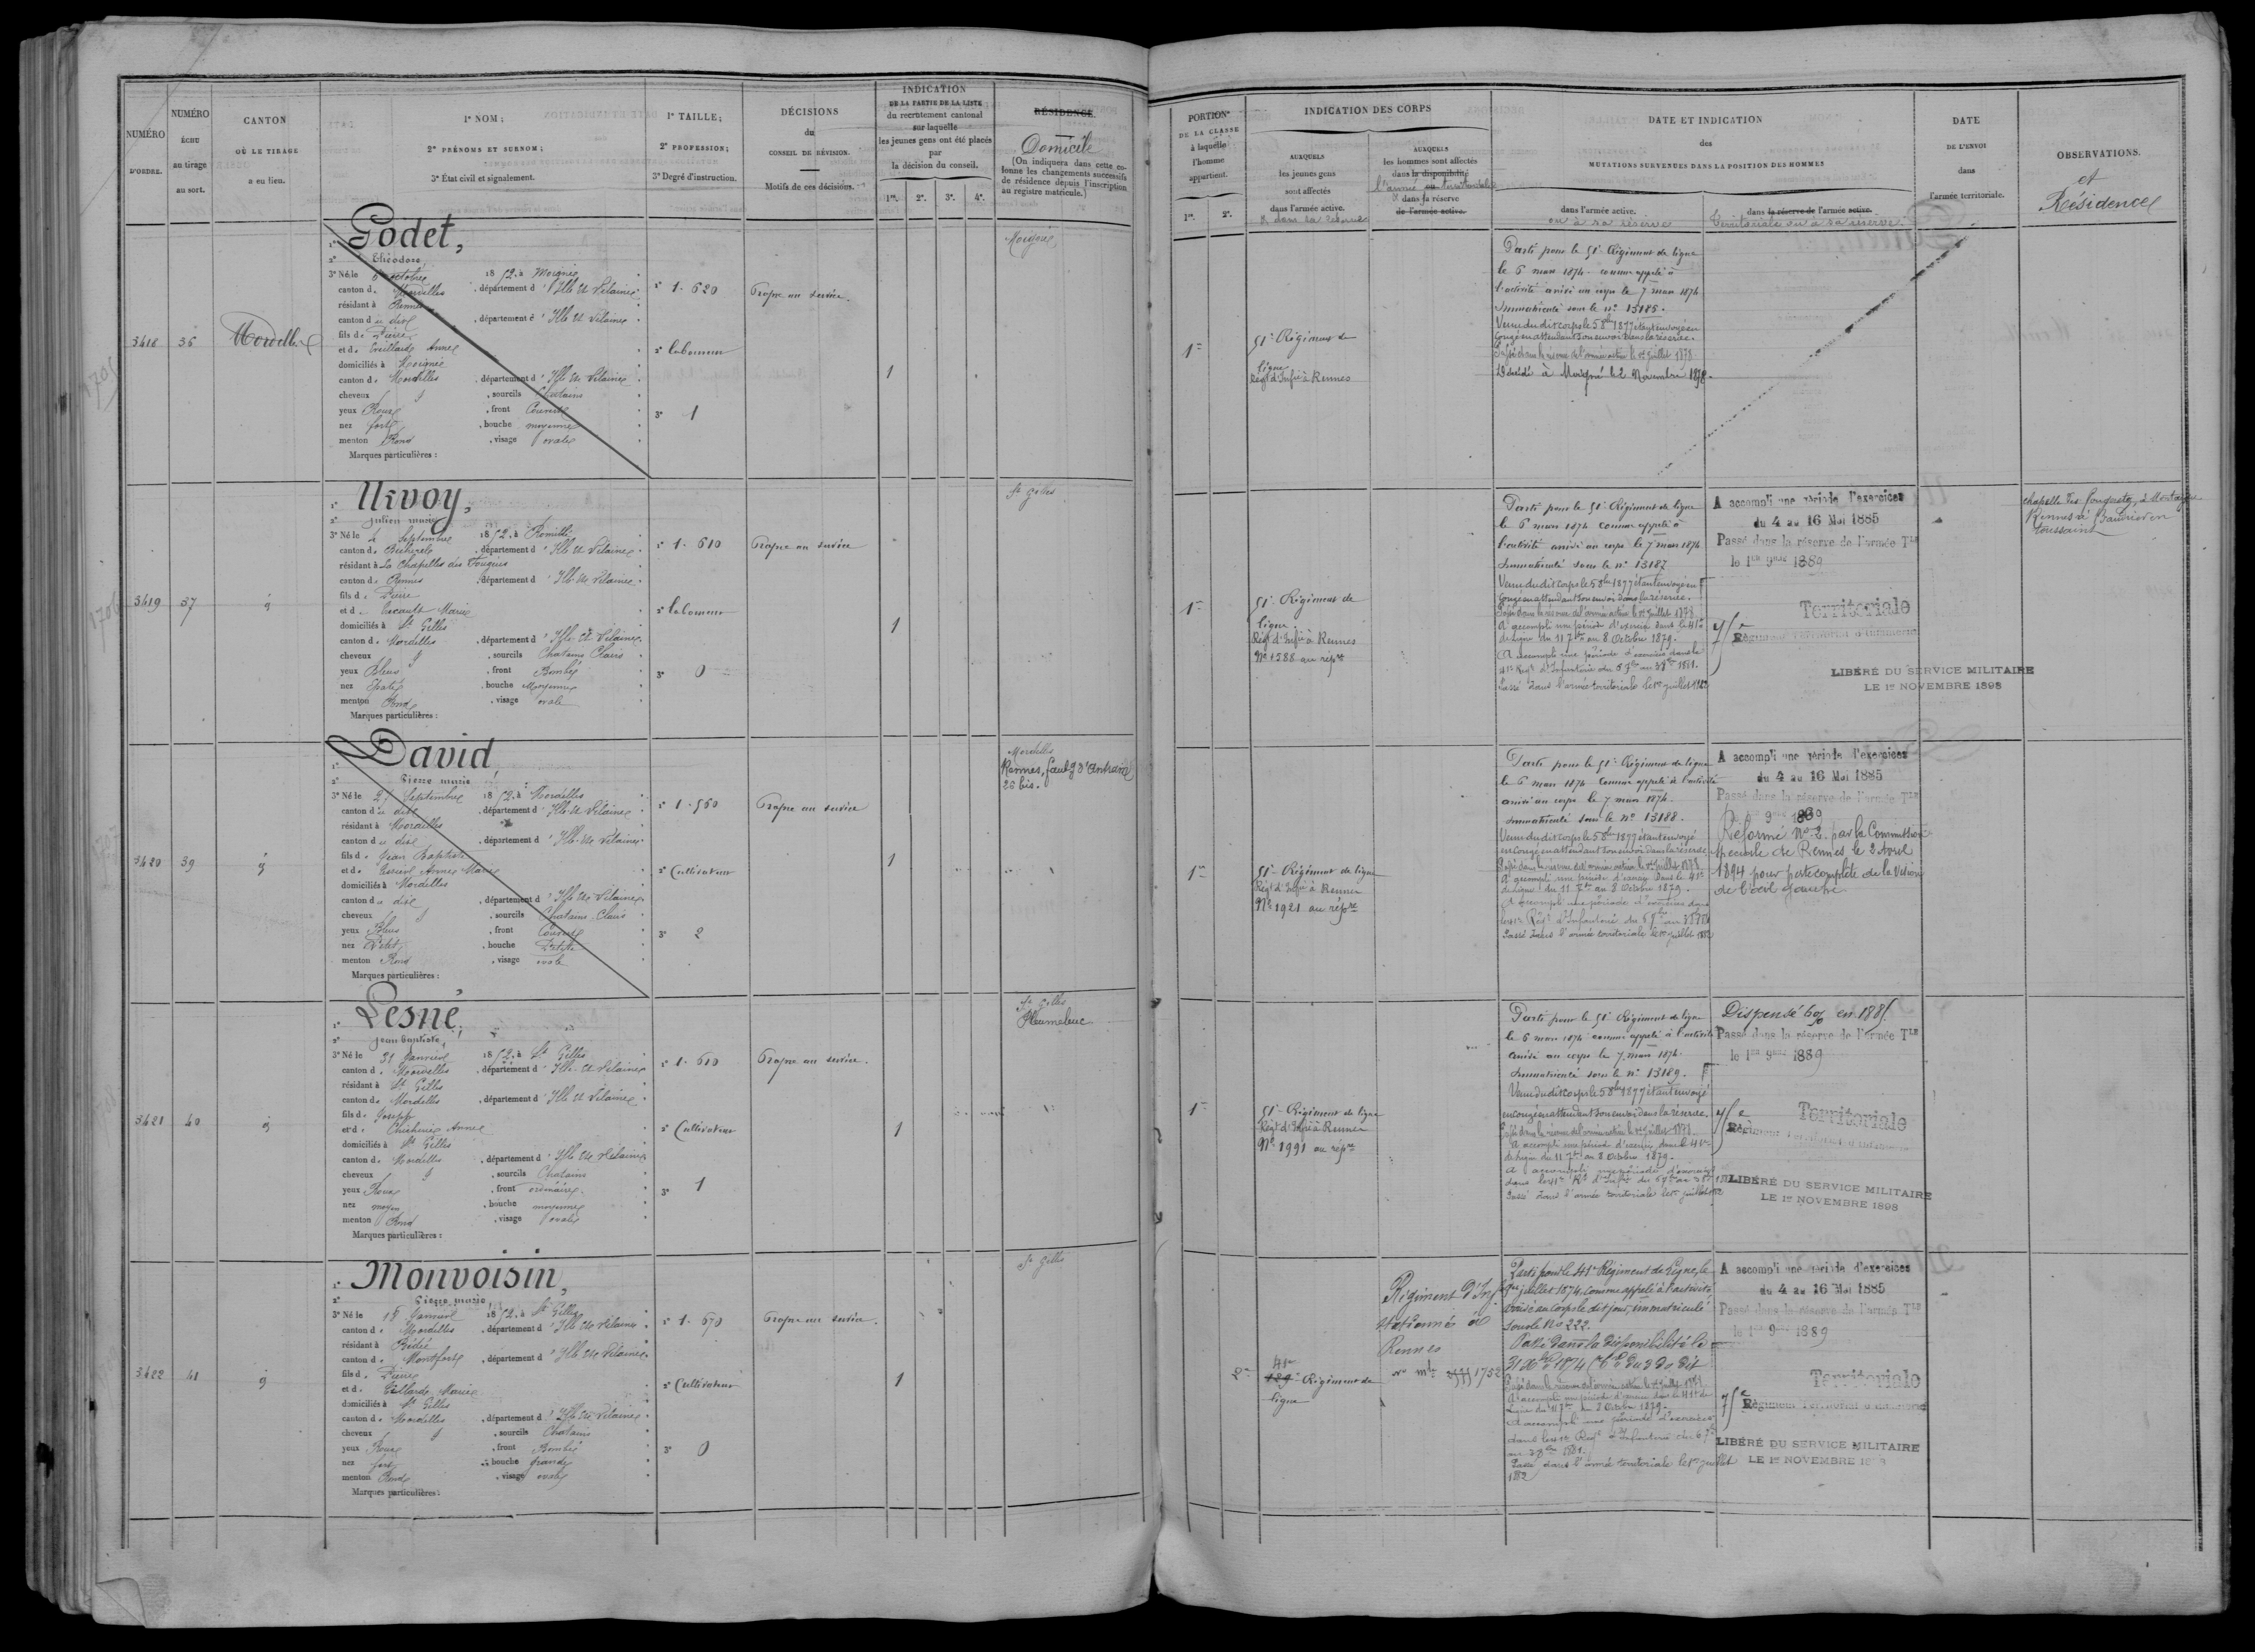 NUMÉRO
D'ORDRE.
NUMÉRO
ÉCHU
au tirage
au sort.
CANTON
OÙ LE TIRAGE
a eu lieu.
1° NOM;
2° PRÉNOMS ET SURNOM;
3° État civil et signalement.
1° TAILLE;
2° PROFESSION;
3° Degré d'instruction.
DÉCISIONS
du
CONSEIL DE RÉVISION.
Motifs de ces décisions.
INDICATION
DE LA PARTIE DE LA LISTE
du recrutement cantonal
sur laquelle
les jeunes gens ont été placés
par
la décision du conseil.
1re. 2e. 3e. 4e.
RÉSIDENCE.
Domicile
(On indiquera dans cette co-
lonne les changements successifs
de résidence depuis l'inscription
au registre matricule.)
3418
36
Mordelles
1° Godet,
2° Théodore,
3° Né le octobre 1852, à Moigné
canton de Mordelles, département d'Ille et Vilaine
résidant à Rennes
canton du dit, département d'Ille et Vilaine
fils de Pierre
et de Anne
domiciliés à Moigné
canton de Mordelles, département d'Ille et Vilaine
cheveux, sourcils Chatains
yeux Roux, front Couvert
nez fort, bouche moyenne
menton Rond, visage ovale
Marques particulières :
1° 1.620
2° laboureur
3° 1
Propre au service.
1
Moigné
3419
37
id
1° Urvoy,
2° Julien marie
3° Né le 4 Septembre 1852, à Romillé
canton de Bécherel, département d'Ille et Vilaine
résidant à La Chapelle des Fougeretz
canton de Rennes, département d'Ille et Vilaine
fils de Pierre
et de Marie
domiciliés à St Gilles
canton de Mordelles, département d'Ille et Vilaine
cheveux, sourcils Chatains Clairs
yeux Bleus, front Bombé
nez Epaté, bouche Moyenne
menton Rond, visage ovale
Marques particulières :
1° 1.610
2° laboureur
3° 0
Propre au service
1
St Gilles
3420
39
id
1° David,
2° Pierre marie
3° Né le Septembre 1852, à Mordelles
canton du dit, département d'Ille et Vilaine
résidant à Mordelles
canton du dit, département d'Ille et Vilaine
fils de Jean Baptiste
et de Anne Marie
domiciliés à Mordelles
canton du dit, département d'Ille et Vilaine
cheveux, sourcils Chatains Clairs
yeux Bleus, front Couvert
nez Petit, bouche Petite
menton Rond, visage ovale
Marques particulières :
1° 1.560
2° Cultivateur
3° 2
Propre au service
1
Mordelles
Rennes, faubg d'Antrain
26 bis.
3421
40
id
1° Lesné,
2° Jean baptiste,
3° Né le 31 Janvier 1852, à St Gilles
canton de Mordelles, département d'Ille et Vilaine
résidant à St Gilles
canton de Mordelles, département d'Ille et Vilaine
fils de Joseph
et de Anne
domiciliés à St Gilles
canton de Mordelles, département d'Ille et Vilaine
cheveux, sourcils Chatains
yeux Roux, front ordinaire
nez moyen, bouche moyenne
menton Rond, visage ovale
Marques particulières :
1° 1.610
2° Cultivateur
3° 1
Propre au service.
1
St Gilles
Pleumeleuc
3422
41
id
1° Monvoisin,
2° Pierre marie
3° Né le 18 Janvier 1852, à St Gilles
canton de Mordelles, département d'Ille et Vilaine
résidant à Bédée
canton de Montfort, département d'Ille et Vilaine
fils de Pierre
et de Marie
domiciliés à St Gilles
canton de Mordelles, département d'Ille et Vilaine
cheveux, sourcils Chatains
yeux Roux, front Bombé
nez fort, bouche grande
menton Rond, visage ovale
Marques particulières :
1° 1.670
2° Cultivateur
3° 0
Propre au service.
1
St Gilles
PORTION
DE LA CLASSE
à laquelle
l'homme
appartient.
1re. 2e.
INDICATION DES CORPS
AUXQUELS
les jeunes gens
sont affectés
dans l'armée active.
& dans sa réserve
AUXQUELS
les hommes sont affectés
dans la disponibilité
l'armée territoriale
& dans sa réserve
de l'armée active.
DATE ET INDICATION
des
MUTATIONS SURVENUES DANS LA POSITION DES HOMMES
dans l'armée active.
ou à sa réserve
dans la réserve de l'armée active.
Territoriale ou à sa réserve.
DATE
DE L'ENVOI
dans
l'armée territoriale.
OBSERVATIONS.
et
Résidence
1re
51e Régiment de
ligne
Régt d'Infie à Rennes
Parti pour le 51e Régiment de ligne
le 6 mars 1874 comme appelé à
l'activité arrivé au corps le 7 mars 1874
Immatriculé sous le n° 13185.
Venu du dit corps le 5 8bre 1877 étant envoyé en
congé en attendant son envoi dans la réserve.
Passé dans la réserve de l'armée active le 1er juillet 1878.
Décédé à Moigné le 2 Novembre 1878.
1re
51e Régiment de
ligne
Régt d'Infie à Rennes
N° 1588 au répre
Parti pour le 51e Régiment de ligne
le 6 mars 1874 comme appelé à
l'activité arrivé au corps le 7 mars 1874
Immatriculé sous le n° 13187
Venu du dit corps le 5 8bre 1877 étant envoyé en
congé en attendant son envoi dans la réserve.
Passé dans la réserve de l'armée active le 1er juillet 1878.
A accompli une période d'exercice dans le 41e
de Ligne du 11 7bre au 8 Octobre 1879.
A accompli une période d'exercices dans le
41e Regt d'Infanterie du 6 7bre au 3 8bre 1881.
Passé dans l'armée territoriale le 1er juillet 1882
A accompli une période d'exercices
du 4 au 16 Mai 1885
Passé dans la réserve de l'armée Tle
le 1er 9bre 1889
75e Régiment Territorial d'Infanterie
Territoriale
LIBÉRÉ DU SERVICE MILITAIRE
LE 1er NOVEMBRE 1898
chapelle des Fougeretz, 2 Montagne
Rennes à
toussaint
1re
51e Régiment de ligne
Régt d'Infie à Rennes
N° 1921 au répre
Parti pour le 51e Régiment de ligne
le 6 mars 1874 comme appelé à l'activité
arrivé au corps le 7 mars 1874.
Immatriculé sous le n° 13188.
Venu du dit corps le 5 8bre 1877 étant envoyé
en congé en attendant son envoi dans la réserve
Passé dans la réserve de l'armée active le 1er juillet 1878.
A accompli une période d'exercice dans le 41e
de Ligne du 11 7bre au 8 Octobre 1879.
A accompli une période d'exercices dans
le 41e Regt d'Infanterie du 6 7bre au 3 8bre 1881
Passé dans l'armée territoriale le 1er juillet 1882
A accompli une période d'exercices
du 4 au 16 Mai 1885
Passé dans la réserve de l'armée Tle
le 1er 9bre 1889
Réformé N° 2 par la Commission
spéciale de Rennes le 2 Avril
1894 pour perte complète de la vision
de l'œil gauche
1re
51e Régiment de ligne
Régt d'Infie à Rennes
N° 1991 au répre
Parti pour le 51e Régiment de ligne
le 6 mars 1874 comme appelé à l'activité
arrivé au corps le 7 mars 1874.
Immatriculé sous le n° 13189.
Venu du dit corps le 5 8bre 1877 étant envoyé
en congé en attendant son envoi dans la réserve.
Passé dans la réserve de l'armée active le 1er juillet 1878
A accompli une période d'exercice dans le 41e
de Ligne du 11 7bre au 8 Octobre 1879.
A accompli une période d'exercices
dans le 41e Rt d'Infie du 6 7bre au 3 8bre 1881
Passé dans l'armée territoriale le 1er juillet 1882
Dispensé 6% en 1885
Passé dans la réserve de l'armée Tle
le 1er 9bre 1889
75e Régiment Territorial d'Infanterie
Territoriale
LIBÉRÉ DU SERVICE MILITAIRE
LE 1er NOVEMBRE 1898
2e
41e
129e Régiment de
ligne
Régiment d'Inf
stationné à
Rennes
N° mle 1752
Parti pour le 41e Régiment de Ligne, le
1er juillet 1874, comme appelé à l'activité
arrivé au corps le dit jour, immatriculé
sous le No 222.
Passé dans la disponibilité le
31 Xbre 1874
Passé dans la réserve de l'armée active le 1er juillet 1878
A accompli une période d'exercice dans le 41e de
Ligne du 11 7bre au 8 Octobre 1879.
A accompli une période d'exercices
dans le 41e Regt d'Infanterie du 6 7bre
au 3 8bre 1881.
Passé dans l'armée territoriale le 1er juillet
1882
A accompli une période d'exercices
du 4 au 16 Mai 1885
Passé dans la réserve de l'armée Tle
le 1er 9bre 1889
75e Régiment Territorial d'Infanterie
Territoriale
LIBÉRÉ DU SERVICE MILITAIRE
LE 1er NOVEMBRE 1898